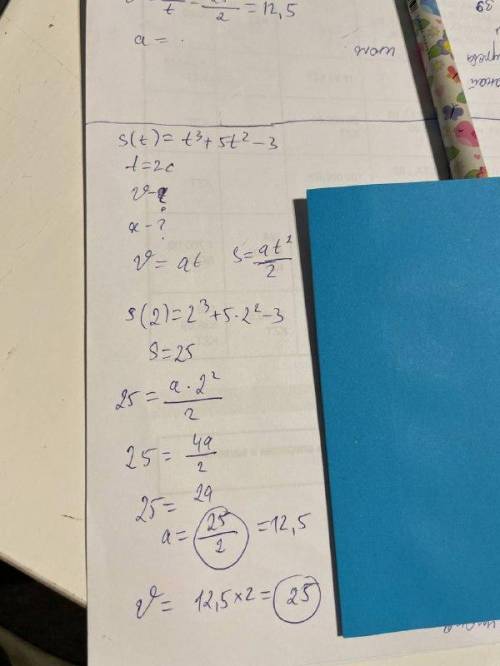 t 2 = 12,5
a =
s(t) = t³ + 5t² - 3
t = 2c
v - ?
a - ?
v = at s = at²/2
s(2) = 2³ + 5·2² - 3
s = 25
25 = a·2²/2
25 = 4a/2
25 = 2a
a = 25/2 = 12,5
v = 12,5 × 2 = 25
39